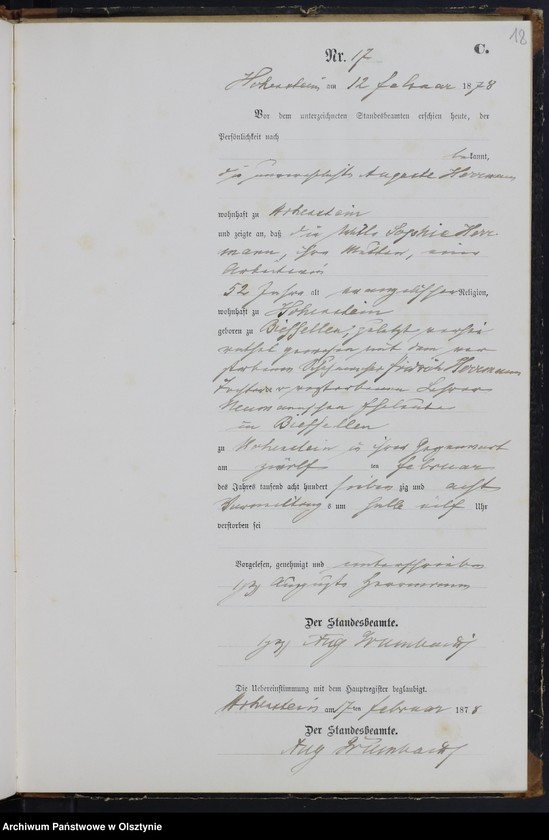 18
C.
Nr. 17
Hohenstein am 12 Februar 1878
Vor dem unterzeichneten Standesbeamten erschien heute, der
Persönlichkeit nach
bekannt,
die unverehelichte Auguste Herrmann
wohnhaft zu Hohenstein
und zeigte an, daß die Wittwe Sophie Herr-
mann, ihre Mutter, eine
Arbeiterin
52 Jahre alt evangelischer Religion,
wohnhaft zu Hohenstein
geboren zu Biessellen, zuletzt verhei
rathet gewesen mit dem ver
storbenen Friedrich Herrmann
Tochter der verstorbenen
Neumannschen Eheleute
in Biessellen
zu Hohenstein in ihrer Gegenwart
am zwölf ten Februar
des Jahres tausend acht hundert sieben zig und acht
Vormittags um halb elf Uhr
verstorben sei
Vorgelesen, genehmigt und unterschrieben
gez Auguste Herrmann
Der Standesbeamte.
gez Aug
Die Uebereinstimmung mit dem Hauptregister beglaubigt.
Hohenstein am 17 ten Februar 1878
Der Standesbeamte.
Aug
Archiwum Państwowe w Olsztynie